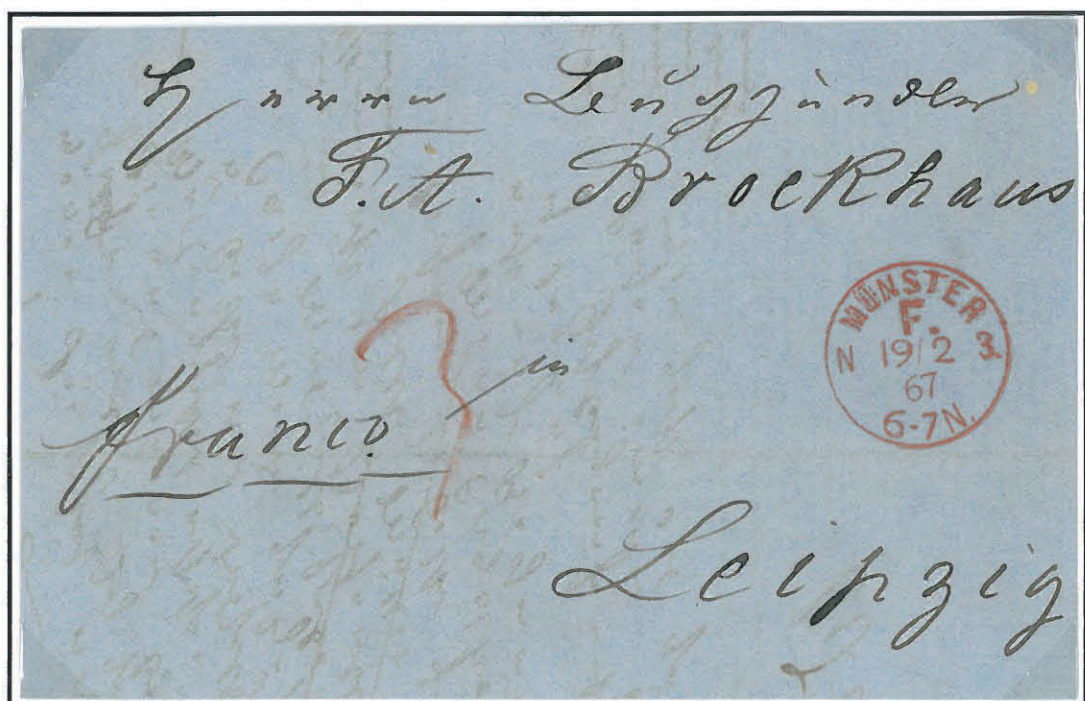 Herrn Buchhändler
F. A. Brockhaus
MÜNSTER
F.
N 19/2 3.
67
6-7N.
3
in
franco.
Leipzig